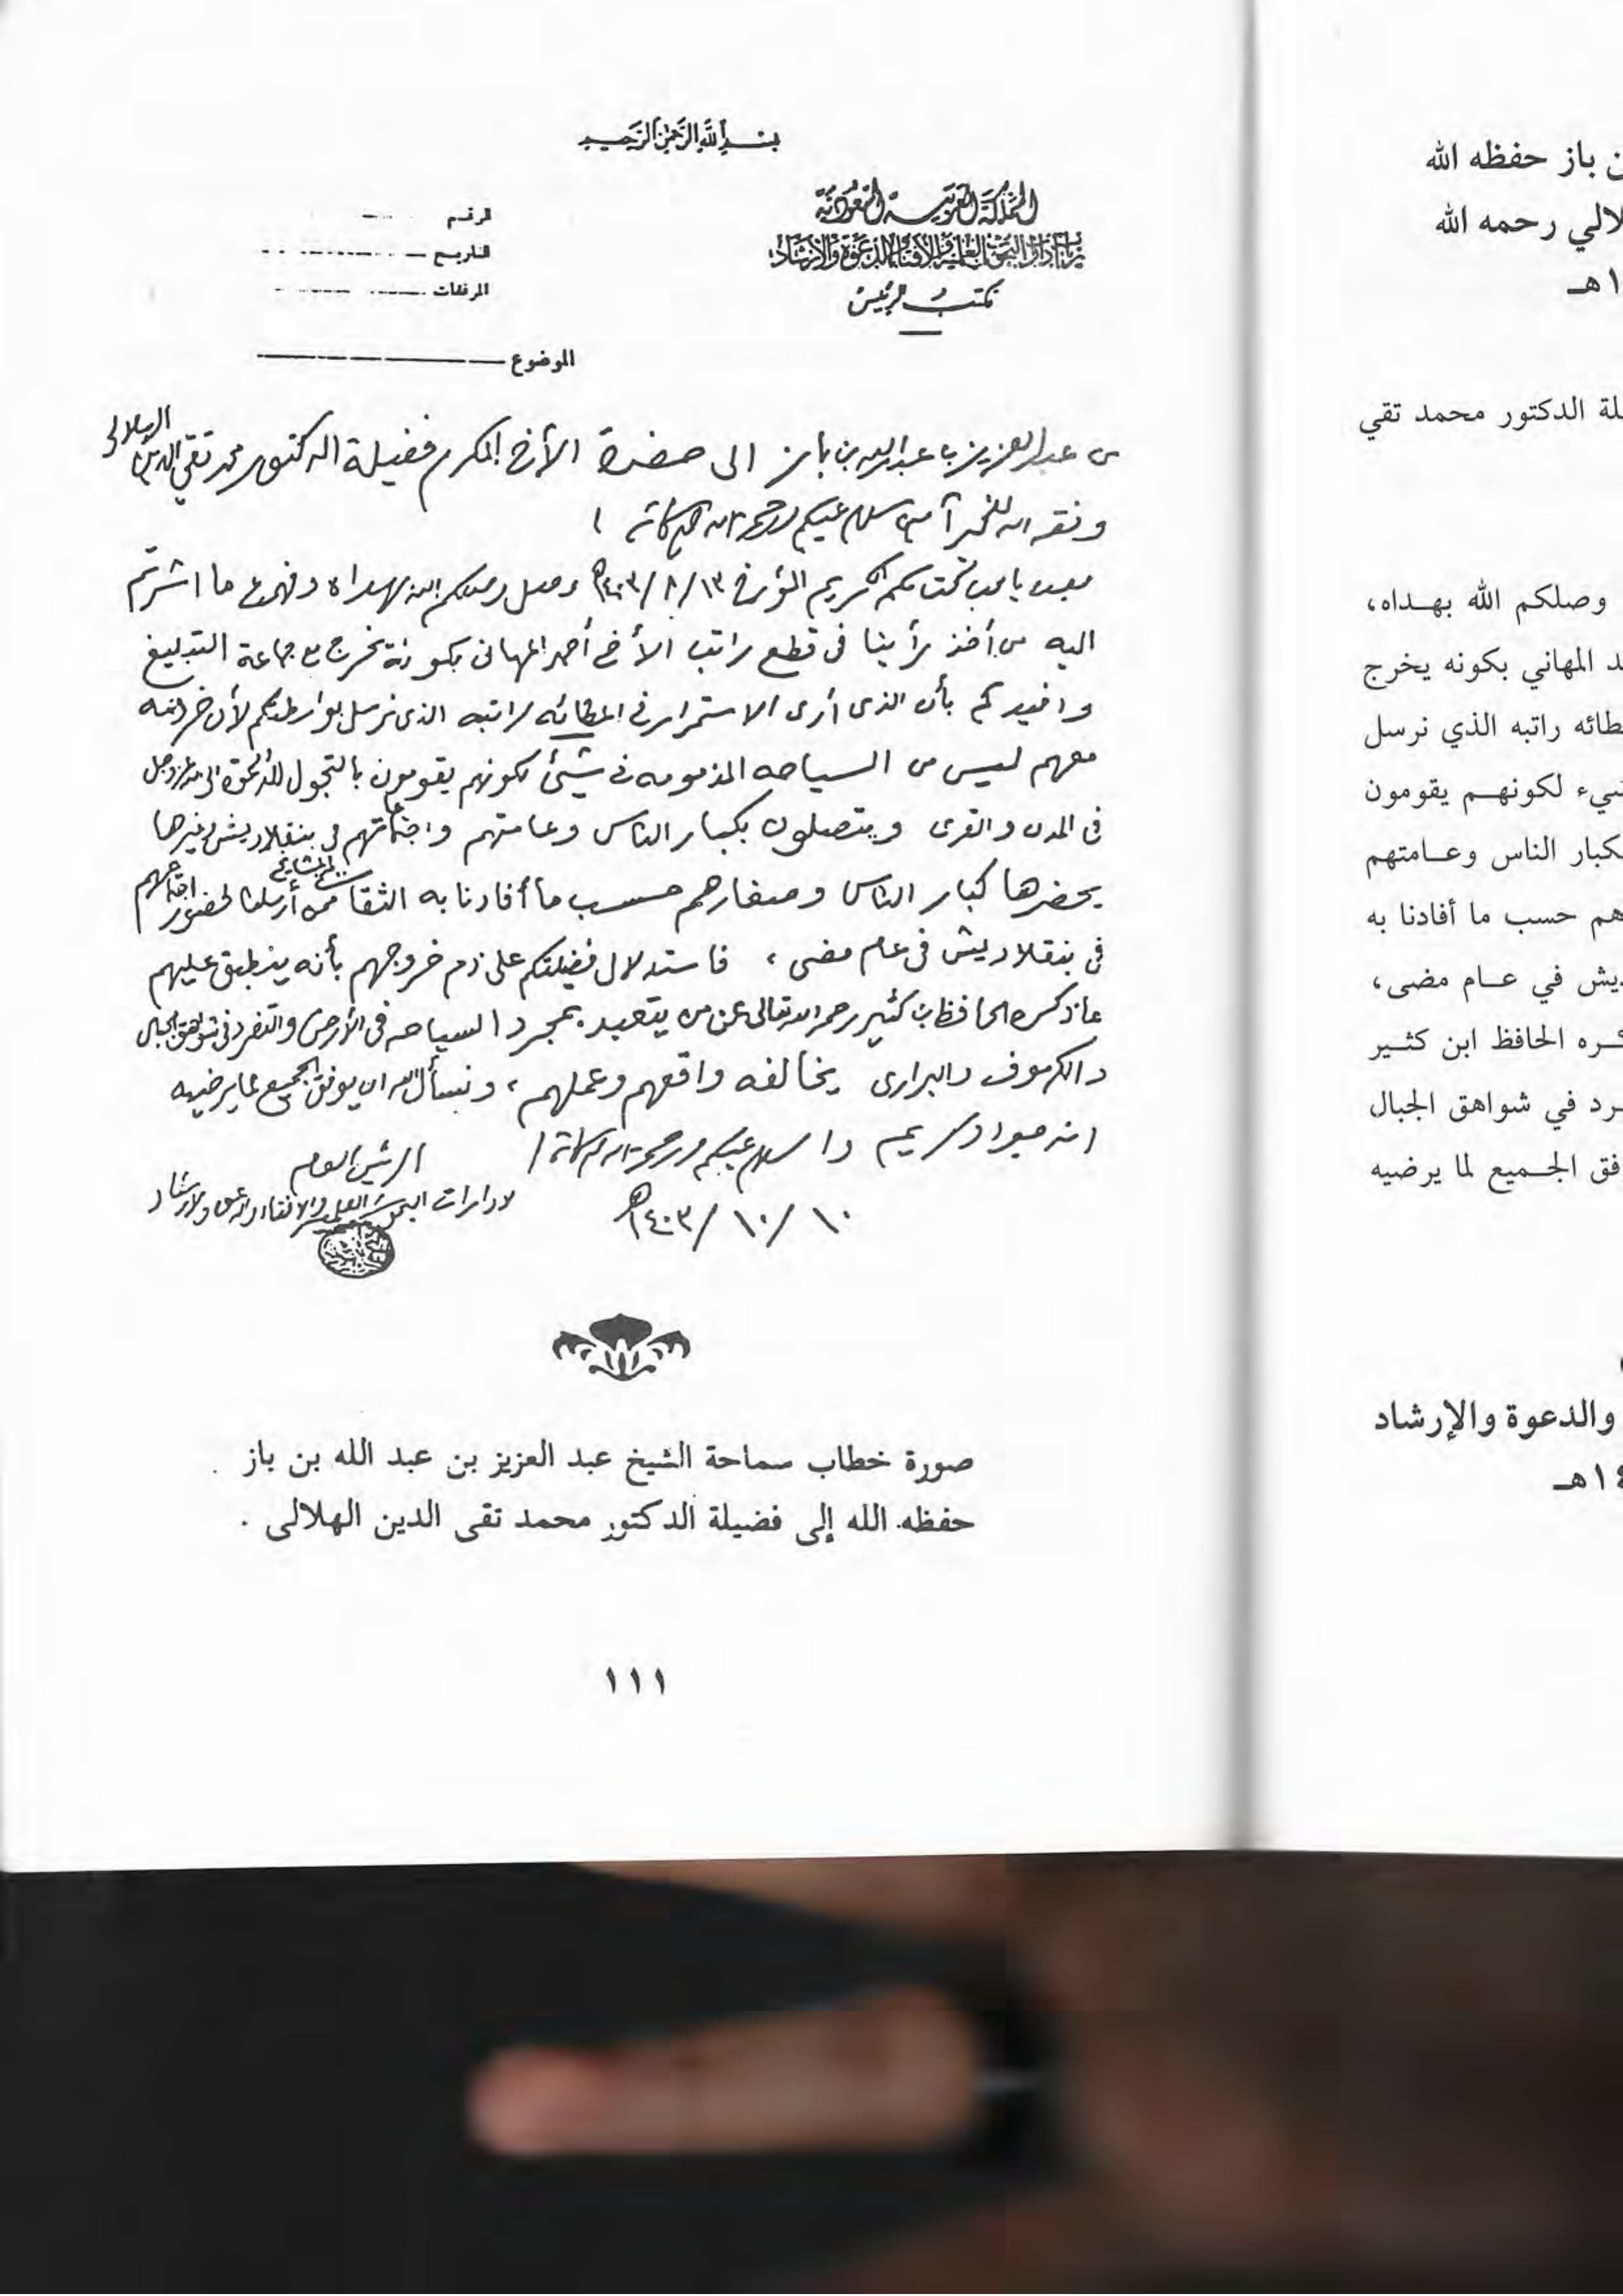 بسم الله الرحمن الرحيم
المملكة العربية السعودية
رئاسة إدارات البحوث العلمية والافتاء والدعوة والارشاد
مكتب الرئيس
الرقم
التاريخ
المرفقات
الموضوع
من عبد العزيز بن عبد الله بن باز الى حضرة الأخ المكرم فضيلة الدكتور محمد تقي الدين الهلالي
وفقه الله للخير آمين سلام عليكم ورحمة الله وبركاته
بعده يا محب كتابكم الكريم المؤرخ ١٣/٨/١٤٠٣هـ وصل وصلكم الله بهداه وفهمت ما اشرتم
اليه من أخذ رأينا في قطع راتب الأخ أحمد المهاني بكونه يخرج مع جماعة التبليغ
وافيدكم بأن الذي أرى الاستمرار في اعطائه راتبه الذي نرسل بواسطتكم لأن خروجه
معهم ليس من السياحه المذمومه في شيئ لكونهم يقومون بالتجول للدعوة الى الله عز وجل
في المدن والقرى ويتصلون بكبار الناس وعامتهم واجتماعاتهم في بنقلاديش وغيرها
يحضرها كبار الناس وصغارهم حسب ما أفادنا به الثقات من المشايخ ممن أرسلنا لحضور اجتماعهم
في بنقلاديش في عام مضى ، فاستدلال فضيلتكم على ذم خروجهم بأنه ينطبق عليهم
ما ذكره الحافظ ابن كثير رحمه الله تعالى عن من يتعبد بمجرد السياحه في الأرض والتفرد في شواهق الجبال
والكهوف والبراري يخالفه واقعهم وعملهم ، ونسأل الله ان يوفق الجميع لما يرضيه
انه جواد كريم والسلام عليكم ورحمة الله وبركاته
الرئيس العام
لادارات البحوث العلمية والافتاء والدعوة والارشاد
١٠/١٠/١٤٠٣هـ
صورة خطاب سماحة الشيخ عبد العزيز بن عبد الله بن باز
حفظه الله إلى فضيلة الدكتور محمد تقى الدين الهلالى .
١١١
ن باز حفظه الله
لالي رحمه الله
١هـ
لة الدكتور محمد تقي
وصلكم الله بهـداه،
ـد المهاني بكونه يخرج
طائه راتبه الذي نرسل
شيء لكونهـم يقومون
كبار الناس وعـامتهم
هم حسب ما أفادنا به
ديش في عـام مضى،
كـره الحافظ ابن كثـير
ـرد في شواهق الجبال
فق الجـميع لما يرضيه
والدعوة والإرشاد
١٤هـ